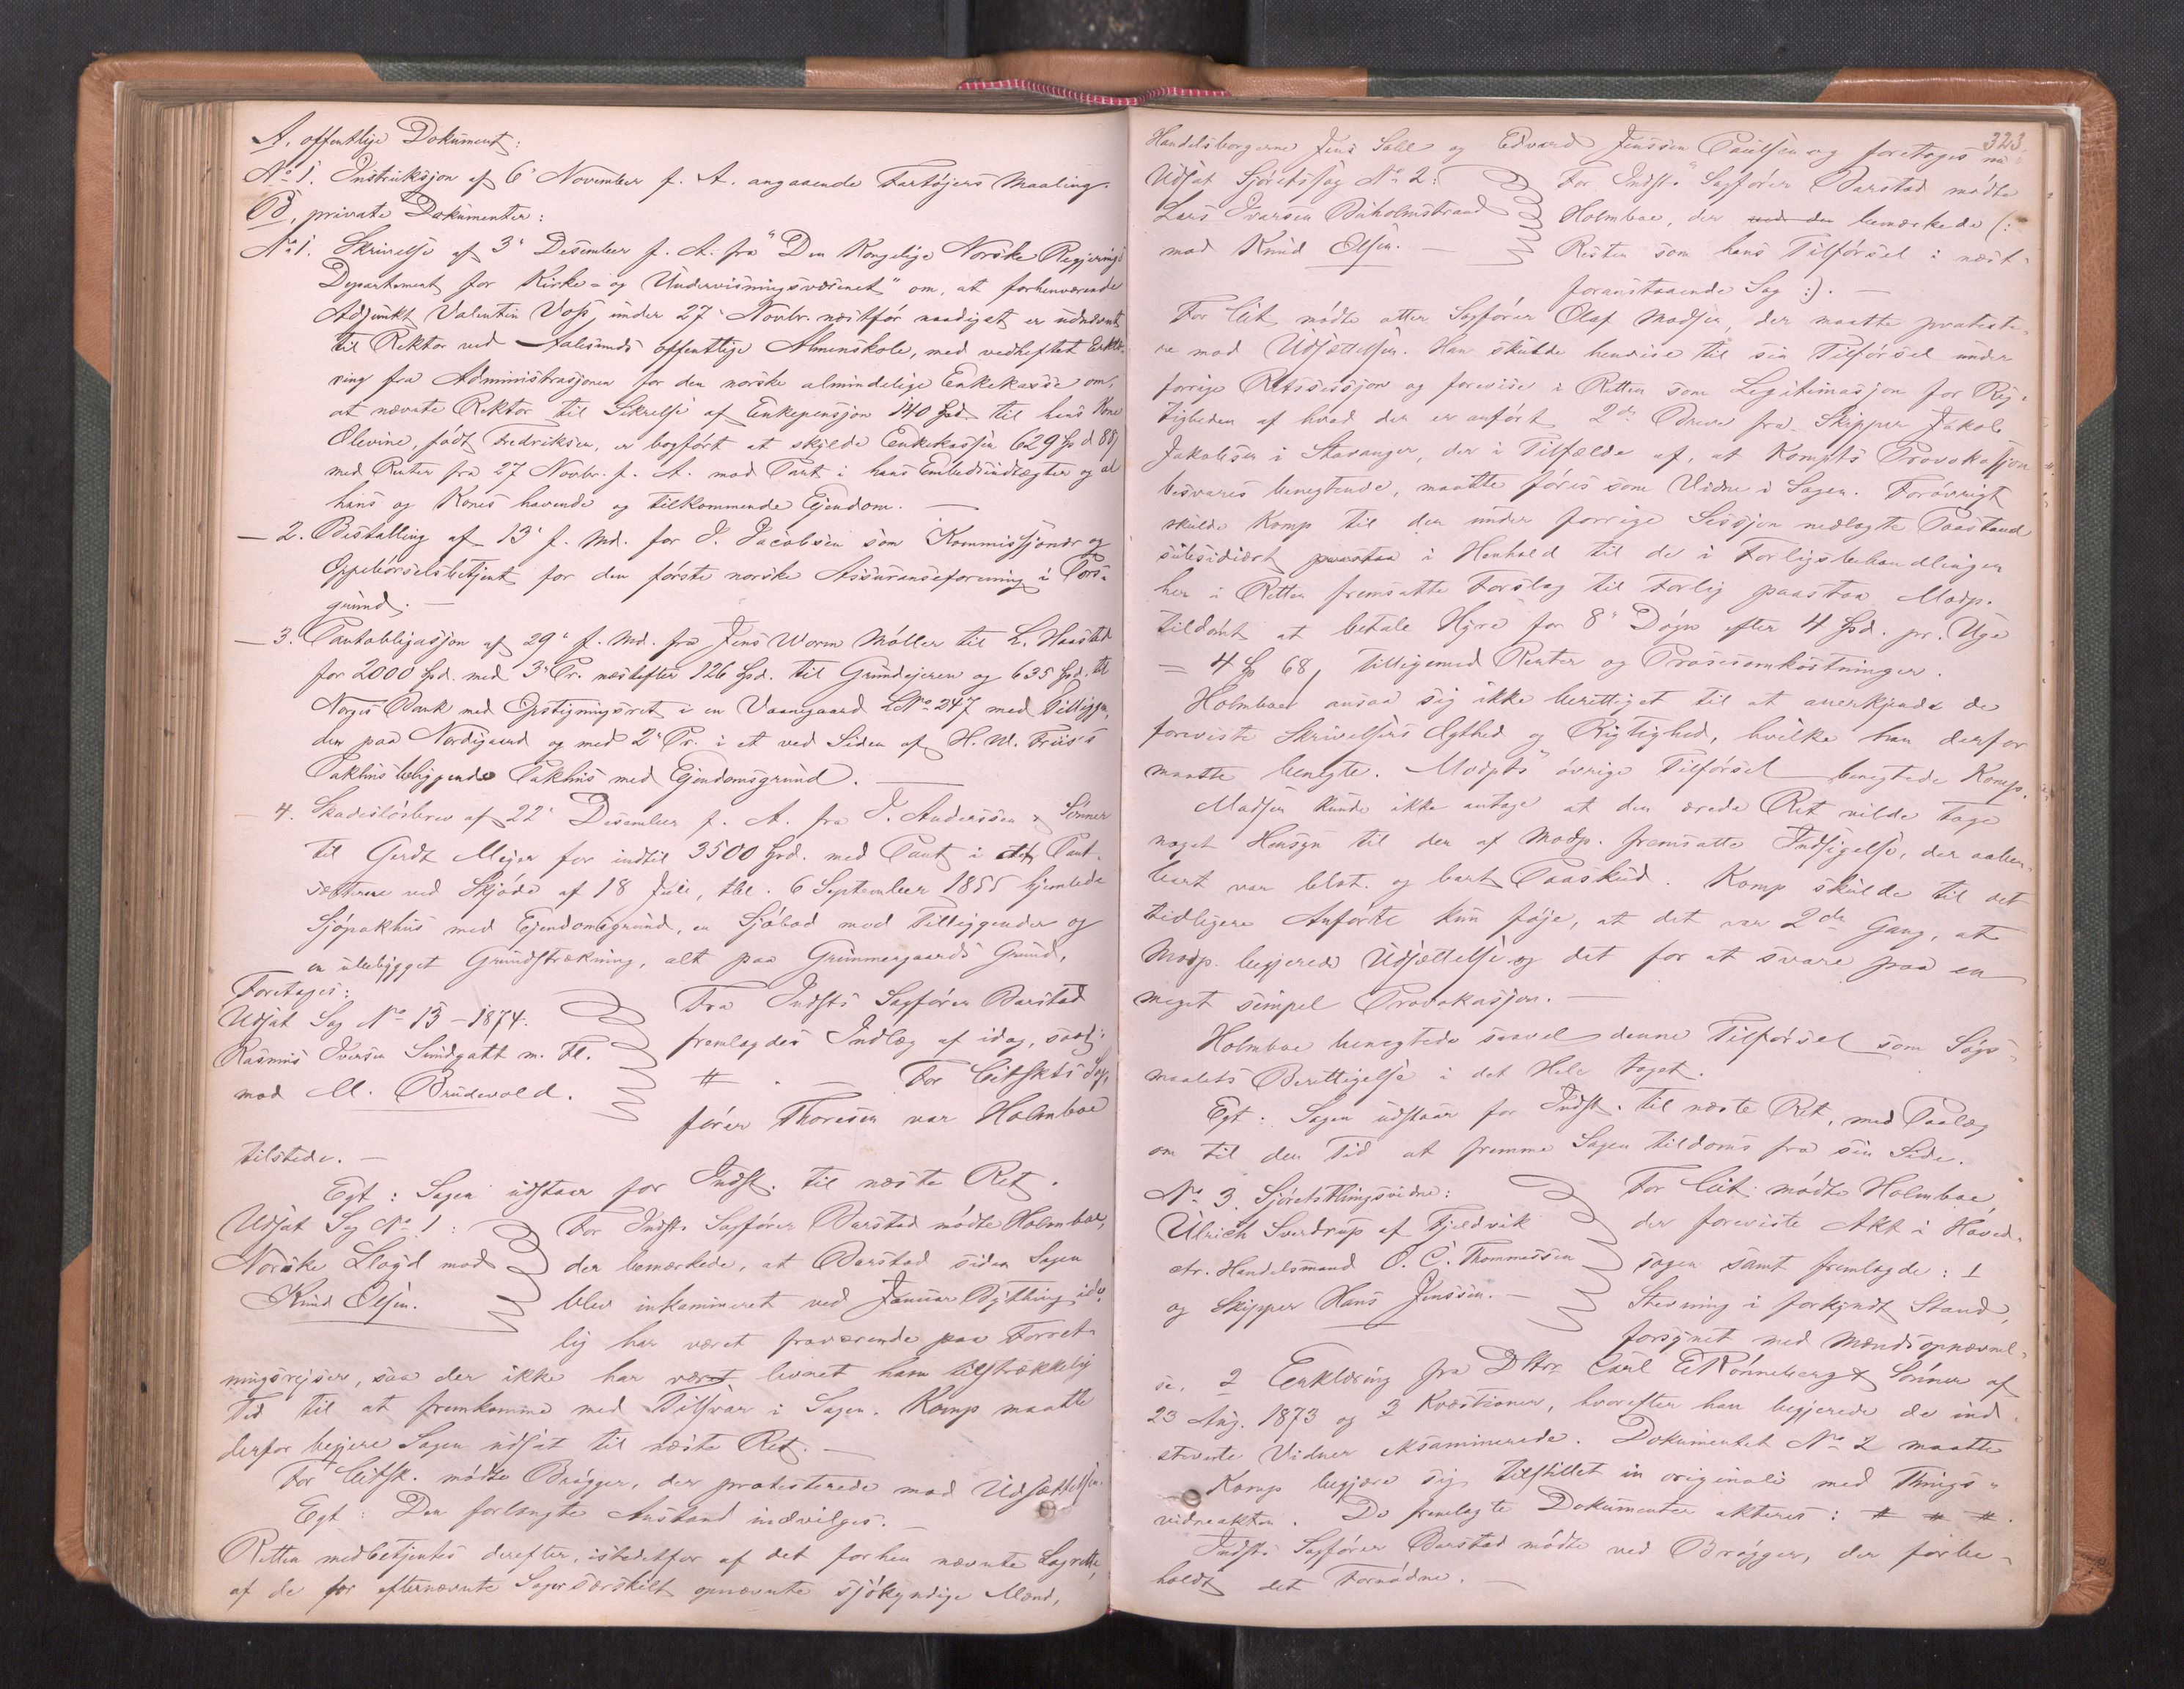 A, offentlige Dokument:
No 1. Instruksjon af 6' November f. A. angaaende Fartøjers Maaling.
B, private Dokumenter:
No 1. Skrivelse af 3' Desember f. A. fra "Den Kongelige Norske Regjerings
Departement for Kirke- og Undervisningsvæsenet" om, at forhenværende
Adjunkt Valentin Voss, under 27' Novbr. næstfør naadigst er udnævnt
til Rektor ved Aalesunds offentlige Almenskole, med vedheftet Erklæ-
ring fra Administrasjonen for den norske almindelige Enkekasse om,
at nævnte Rektor til Sikrelse af Enkepensjon 140 Spd. til hans Kone
Olevine, født Fredriksen, er bogført at skylde Enkekassen 629 Spd 88 ß
med Renter fra 27 Novbr. f. A. mod Pant i hans Embedsindtægter og al
hans og Kones havende og tilkommende Ejendom. —
— 2. Bestalling af 13' f. Md. for J. Jacobsen som Kommissjonær og
Oppebørselsbetjent for den første norske Assuranseforening i Pors-
grund. —
— 3. Pantobligasjon af 29' f. Md. fra Jens Worm Møller til L. Haastad
for 2000 Spd. med 3' Pr. næstefter 126 Spd. til Grundejeren og 635 Spd. til
Norges Bank med Opstigningsret i en Vaanegaard LNo 247 med Tilliggen-
der paa Nordigaard og med 2' Pr. i et ved Siden af H. M. Friis's
Pakhus beliggende Pakhus med Ejendomsgrund. —
— 4. Skadesløsbrev af 22' Desember f. A. fra J. Anderssen & Sønner
til Gerdt Mejer for indtil 3500 Spd. med Pant i det Pant-
sætterne ved Skjøde af 18 Juli, tbl. 6 September 1855 hjemlede
Sjøpakhus med Ejendomsgrund, en Sjøbod med Tilliggender og
en ubebygget Grundstrækning, alt paa Grimmergaards Grund.
Foretages:
Udsat Sag No 13 – 1874.
Rasmus Iversen Sundgatt m. Fl.
mod M. Brudevold.
Fra Indsts Sagfører Barstad
fremlagdes Indlæg af idag, saal:
# . — For Citsktes Sag-
fører Thoresen var Holmboe
tilstede. —
Egt: Sagen udstaar for Indst. til næste Ret.
Udsat Sag No 1:
Norske Lloyd mod
Knud Olsen.
For Indst. Sagfører Barstad mødte Holmboe,
der bemærkede, at Barstad siden Sagen
blev inkamineret ved Januar Bything ide-
lig har været fraværende paa Forret-
ningsrejser, saa der ikke har været levnet ham tilstrækkelig
Tid til at fremkomme med Tilsvar i Sagen. Komp maatte
derfor begjere Sagen udsat til næste Ret. —
For Citsk. mødte Brøgger, der protesterede mod Udsættelsen.
Egt: Den forlangte Anstand indvilges. —
Retten medbetjentes derefter, istedetfor af det forhen nævnte Lagrette,
af de for efternævnte Sager særskilt opnævnte sjøkyndige Mænd,
323
Handelsborgerne Jens Sall og Edvard Jenssen Paulsen og foretoges nu
Udsat Sjøretssag No 2:
Lars Ivarsen Buholmstrand
mod Knud Olsen. —
For Indst. Sagfører Barstad mødte
Holmboe, der bemærkede (:
Resten som hans Tilførsel i næst-
foranstaaende Sag :). —
For Cit. mødte atter Sagfører Olaf Madsen, der maatte proteste-
re mod Udsættelsen. Han skulde henvise til sin Tilførsel under
forrige Retssessjon og forevise i Retten som Legitimasjon for Rig-
tigheden af hvad der er anført 2de Breve fra Skipper Jakob
Jakobsen i Stavanger, der i Tilfælde af, at Kompts Provokasjon
besvares benegtende, maatte føres som Vidne i Sagen. Forøvrigt
skulde Komp til den under forrige Sessjon nedlagte Paastand
subsidiært i Henhold til de i Forligsbehandlingen
her i Retten fremsatte Forslag til Forlig paastaa Modp.
tildømt at betale Hyre for 8' Døgn efter 4 Spd. pr. Uge
= 4 Sp 68 ß, tilligemed Renter og Prosesomkostninger.
Holmboe ansaa sig ikke berettiget til at anerkjende de
foreviste Skrivelsers Ægthed og Rigtighed, hvilke han derfor
maatte benegte. Modpts øvrige Tilførsel benegtede Komp.
Madsen kunde ikke antage at den ærede Ret vilde tage
noget Hensyn til den af Modp. fremsatte Indsigelse, der aaben-
bart var blot og bart Paaskud. Komp skulde til det
tidligere Anførte kun føje, at det var 2den Gang, at
Modp. begjerede Udsættelse og det for at svare paa en
meget simpel Provokasjon. —
Holmboe benegtede saavel denne Tilførsel som Søgs-
maalets Berettigelse i det Hele taget.
Egt: Sagen udstaar for Indst. til næste Ret, med Paalæg
om til den Tid at fremme Sagen tildoms fra sin Side.
No 3. Sjøretsthingsvidne:
Ulrich Sverdrup af Fjeldvik
ctr. Handelsmand O. C. Thommessen
og Skipper Hans Jenssen. —
For Cit. mødte Holmboe,
der foreviste Akt i Hoved-
sagen samt fremlagde: 1
Stevning i forkyndt Stand,
forsynet med Mændsopnævnel-
se, 2 Erklæring fra DHrr Carl E Rønneberg & Sønner af
23 Aug. 1873 og 3 Kvæstioner, hvorefter han begjerede de ind-
stevnte Vidner eksaminerede. Dokumentet No 2 maatte
Komp begjære sig tilstillet in originali med Things-
vidneakten. De fremlagte Dokumenter akteres: # # #.
Indsts Sagfører Barstad mødte ved Brøgger, der forbe-
holdt det Fornødne. —